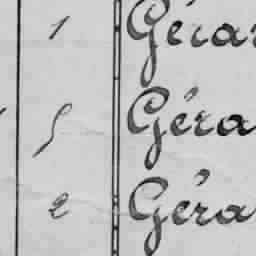 1 Gérar
5 Géra
2 Géra